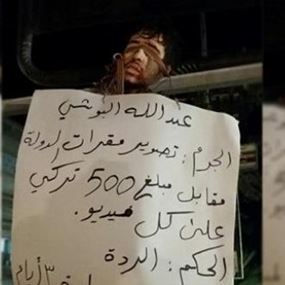 عبد الله البوشي
الجرم: تصوير مقرات الدولة
مقابل مبلغ 500 تركي
على كل فيديو.
الحكم: الردة
٣ أيام